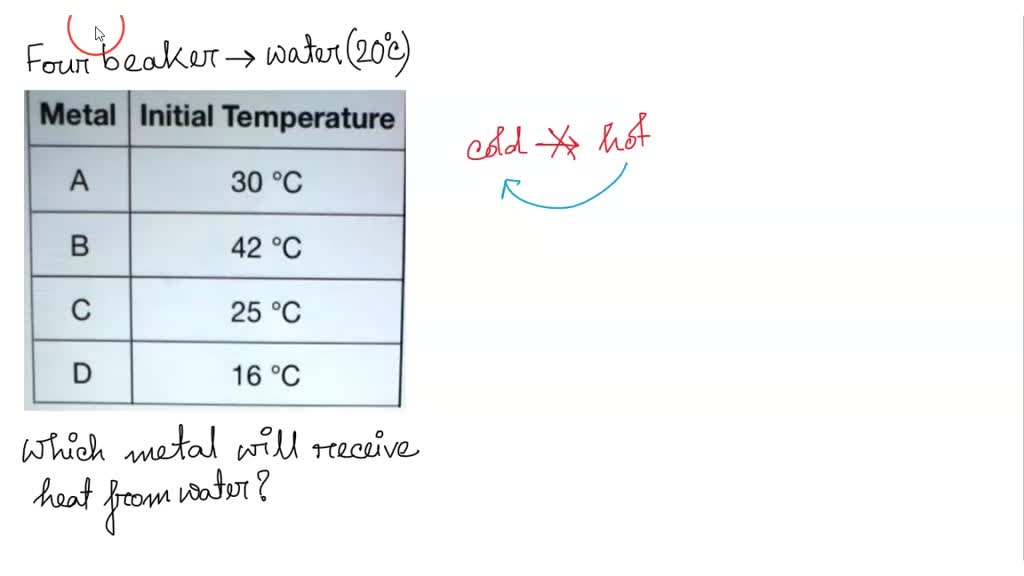 Four beaker → water (20°C)
Metal Initial Temperature
A 30 °C
B 42 °C
C 25 °C
D 16 °C
cold → hot
Which metal will receive
heat from water?